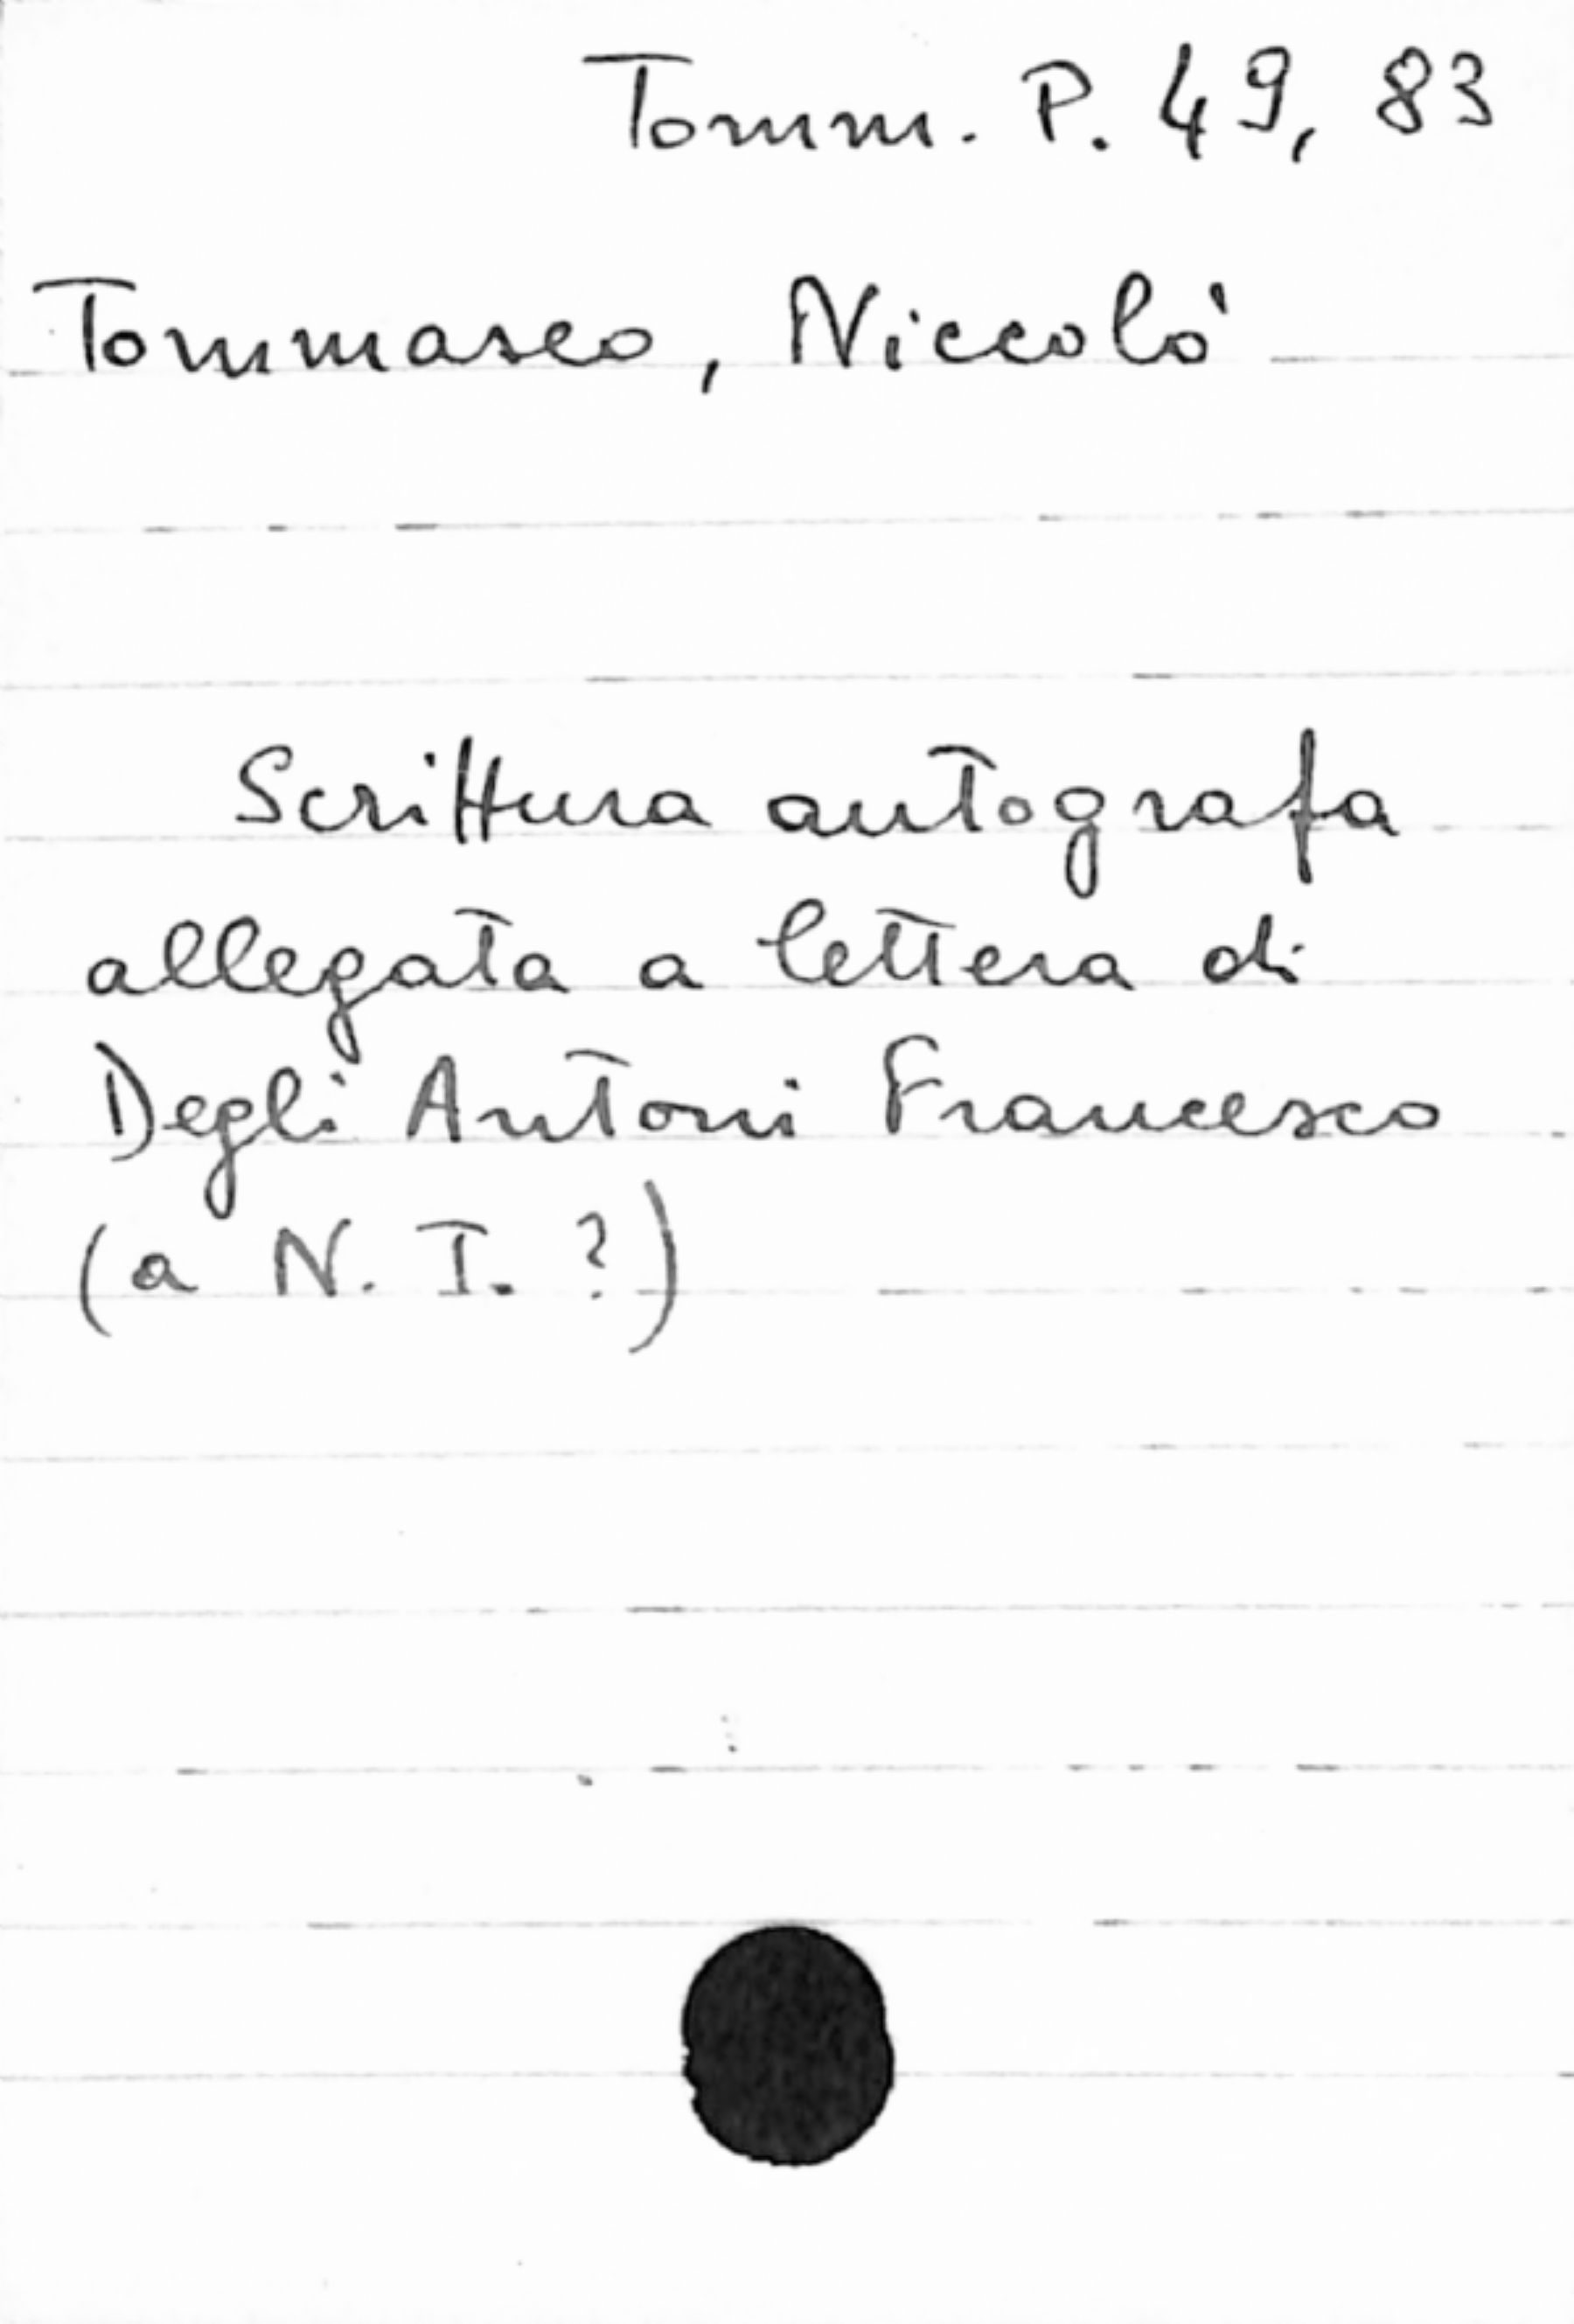 Tomm. P. 49, 83
Tommaseo, Niccolò
Scrittura autografa
allegata a lettera di
Degli Antoni Francesco
(a N. T. ?)